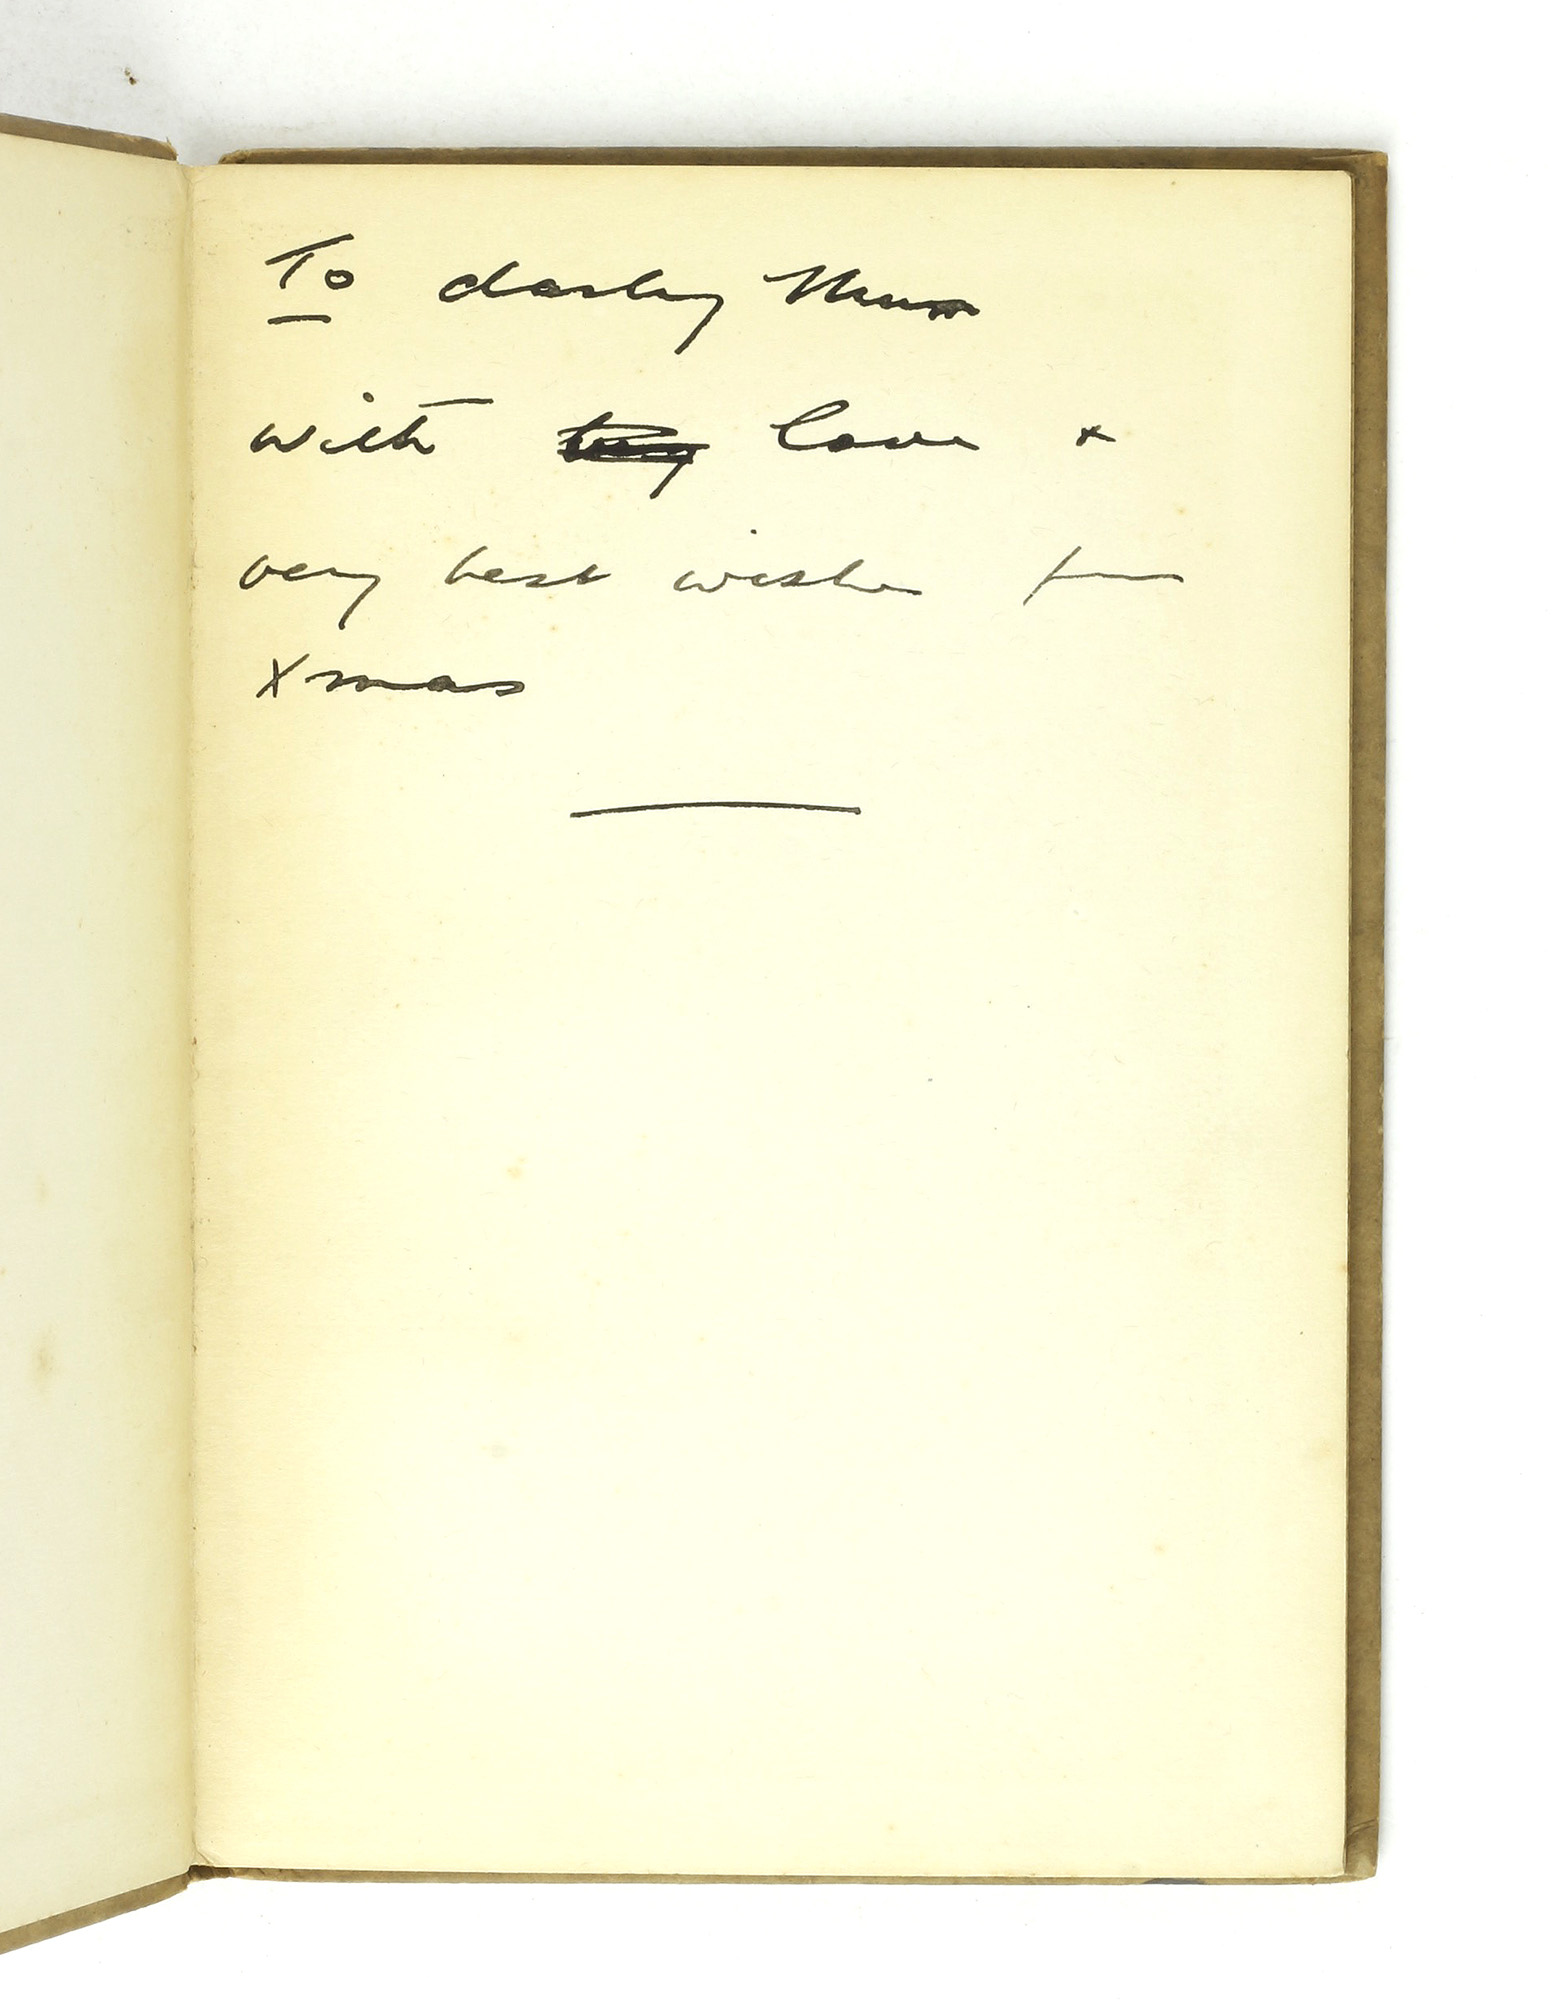 To darling Mum
with very love +
very best wishes for
Xmas